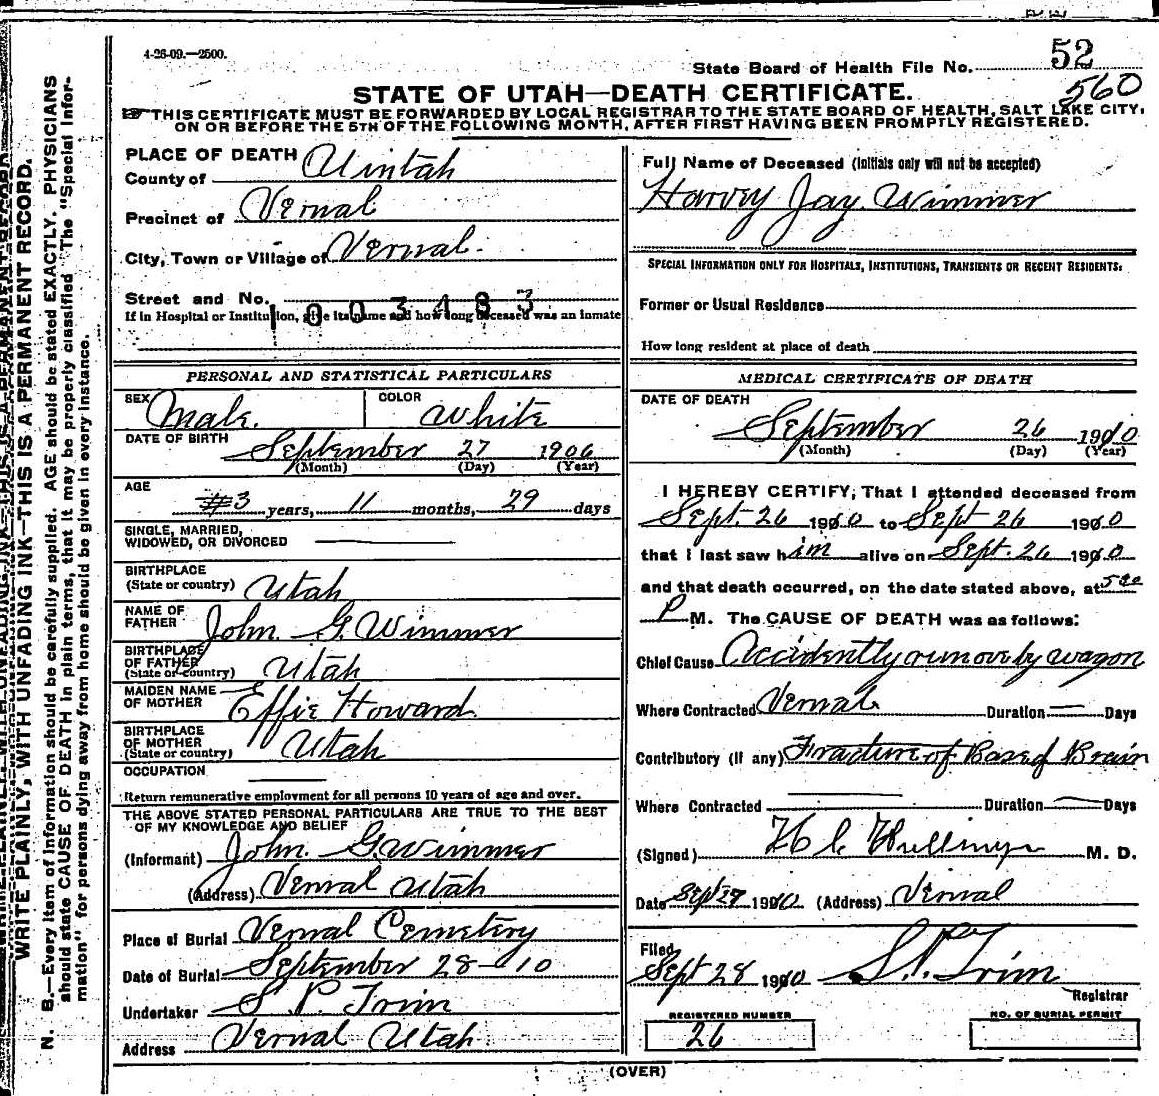 4-26-09.—2500.
State Board of Health File No. 52
560
STATE OF UTAH—DEATH CERTIFICATE.
THIS CERTIFICATE MUST BE FORWARDED BY LOCAL REGISTRAR TO THE STATE BOARD OF HEALTH, SALT LAKE CITY,
ON OR BEFORE THE 5TH OF THE FOLLOWING MONTH, AFTER FIRST HAVING BEEN PROMPTLY REGISTERED.
WRITE PLAINLY, WITH UNFADING INK—THIS IS A PERMANENT RECORD.
N. B.—Every item of information should be carefully supplied. AGE should be stated EXACTLY. PHYSICIANS
should state CAUSE OF DEATH in plain terms, that it may be properly classified. The "Special Infor-
mation" for persons dying away from home should be given in every instance.
PLACE OF DEATH
County of Uintah
Precinct of Vernal
City, Town or Village of Vernal.
Street and No.
1003483
If in Hospital or Institution, give its name and how long deceased was an inmate
PERSONAL AND STATISTICAL PARTICULARS
SEX Male. COLOR White
DATE OF BIRTH September 27 1906
(Month) (Day) (Year)
AGE
3 years, 11 months, 29 days
SINGLE, MARRIED,
WIDOWED, OR DIVORCED
BIRTHPLACE
(State or country) Utah
NAME OF
FATHER John G. Wimmer
BIRTHPLACE
OF FATHER
(State or country) Utah
MAIDEN NAME
OF MOTHER Effie Howard
BIRTHPLACE
OF MOTHER
(State or country) Utah
OCCUPATION
Return remunerative employment for all persons 10 years of age and over.
THE ABOVE STATED PERSONAL PARTICULARS ARE TRUE TO THE BEST
OF MY KNOWLEDGE AND BELIEF
(Informant) John G. Wimmer
(Address) Vernal Utah
Place of Burial Vernal Cemetery
Date of Burial September 28-10
Undertaker S. P. Trim
Address Vernal Utah
Full Name of Deceased (Initials only will not be accepted)
Harvey Jay Wimmer
SPECIAL INFORMATION ONLY FOR HOSPITALS, INSTITUTIONS, TRANSIENTS OR RECENT RESIDENTS:
Former or Usual Residence
How long resident at place of death
MEDICAL CERTIFICATE OF DEATH
DATE OF DEATH
September 26 1910
(Month) (Day) (Year)
I HEREBY CERTIFY, That I attended deceased from
Sept. 26 1910 to Sept 26 1910
that I last saw him alive on Sept. 26 1910
and that death occurred, on the date stated above, at 5 20
P M. The CAUSE OF DEATH was as follows:
Chief Cause Accidently run over by wagon
Where Contracted Vernal Duration — Days
Contributory (if any) Fracture of Base of Brain
Where Contracted Duration — Days
(Signed) H C Hullinger M. D.
Date Sept 27 1910 (Address) Vernal
Filed
Sept 28 1910 S. P. Trim
Registrar
REGISTERED NUMBER
26
NO. OF BURIAL PERMIT
(OVER)